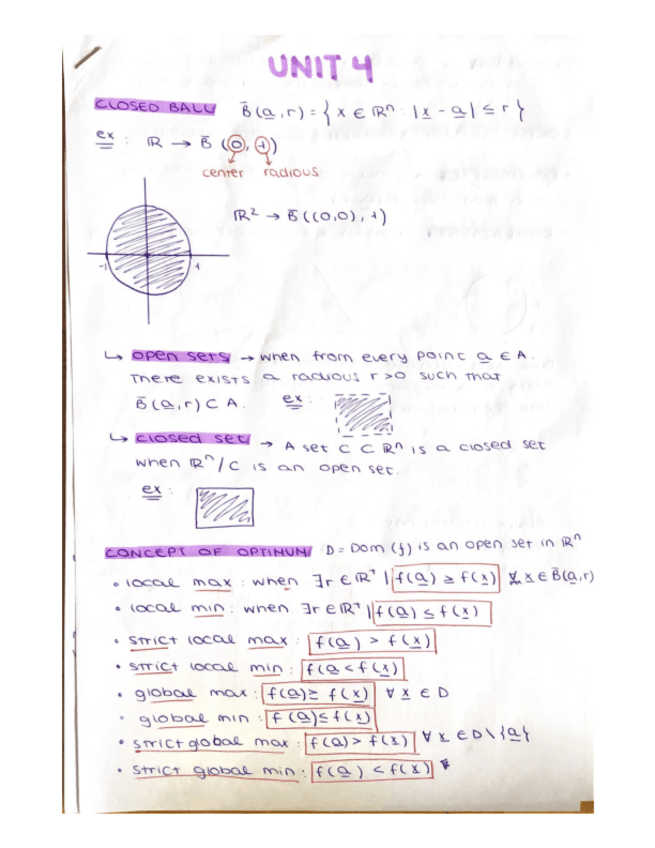 UNIT 4
CLOSED BALL B̄(a̲,r) = { x ∈ ℝⁿ : |x̲ - a̲| ≤ r }
ex : ℝ → B̄ (0, 1)
center radious
ℝ² → B̄((0,0), 1)
-1 1
↳ open sets → when from every point a̲ ∈ A.
There exists a radious r>0 such that
B̄(a̲,r) ⊂ A. ex:
↳ closed set → A set C ⊂ ℝⁿ is a closed set
when ℝⁿ/C is an open set.
ex:
CONCEPT OF OPTIMUM D = Dom (f) is an open set in ℝⁿ
• local max : when ∃r ∈ ℝ⁺ | f(a̲) ≥ f(x̲) ∀ x̲ ∈ B̄(a̲,r)
• local min : when ∃r ∈ ℝ⁺ | f(a̲) ≤ f(x̲)
• strict local max : f(a̲) > f(x̲)
• strict local min : f(a̲ < f(x̲)
• global max : f(a̲) ≥ f(x̲) ∀ x̲ ∈ D
• global min : f(a̲) ≤ f(x̲)
• strict global max : f(a̲) > f(x̲) ∀ x̲ ∈ D \ {a̲}
• strict global min : f(a̲) < f(x̲)